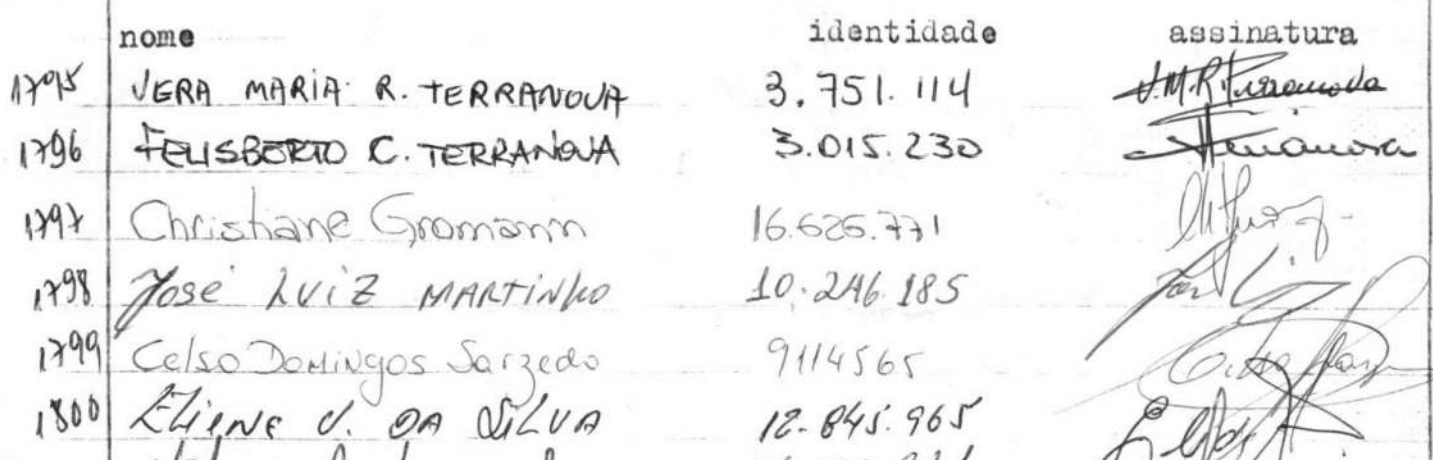 nome identidade assinatura
1795 VERA MARIA R. TERRANOVA 3.751.114 V.M.R.Terranova
1796 FELISBERTO C. TERRANOVA 3.015.230 Terranova
1797 Christiane Gromann 16.626.771
1798 José LUIZ MARTINHO 10.246.185
1799 Celso Domingos Sarzedo 9114565
1800 Eliene V. DA SILVA 12.845.965